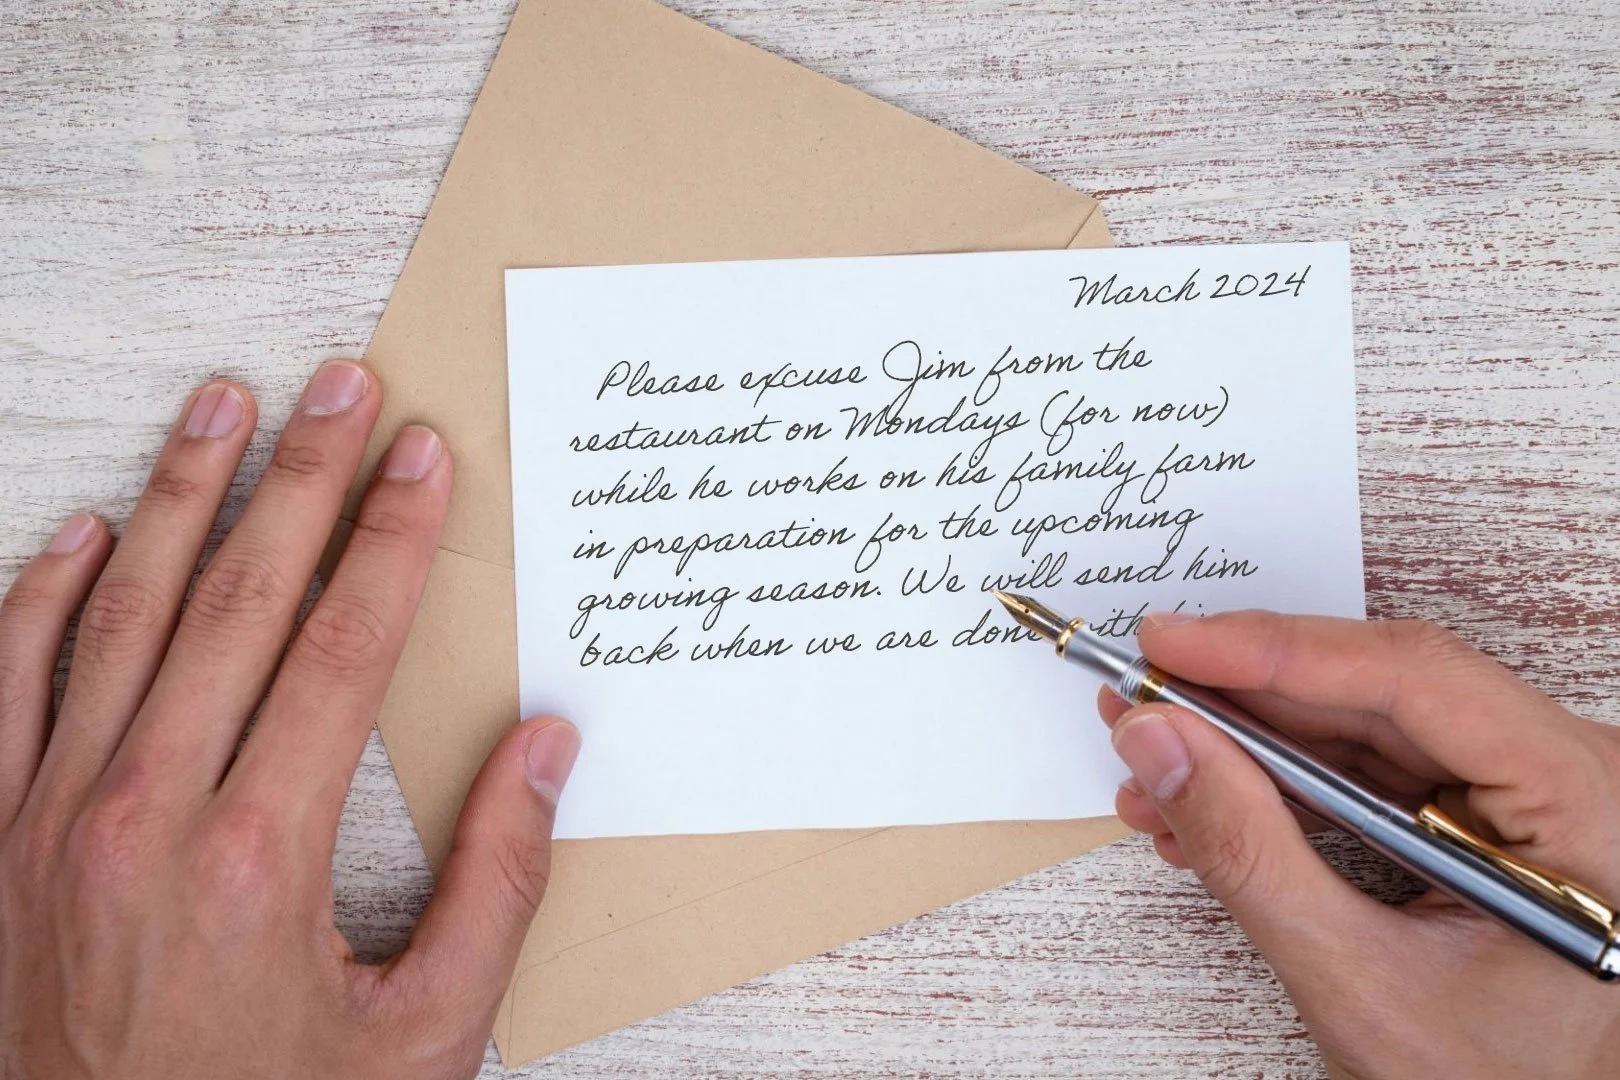 March 2024
Please excuse Jim from the
restaurant on Mondays (for now)
while he works on his family farm
in preparation for the upcoming
growing season. We will send him
back when we are done